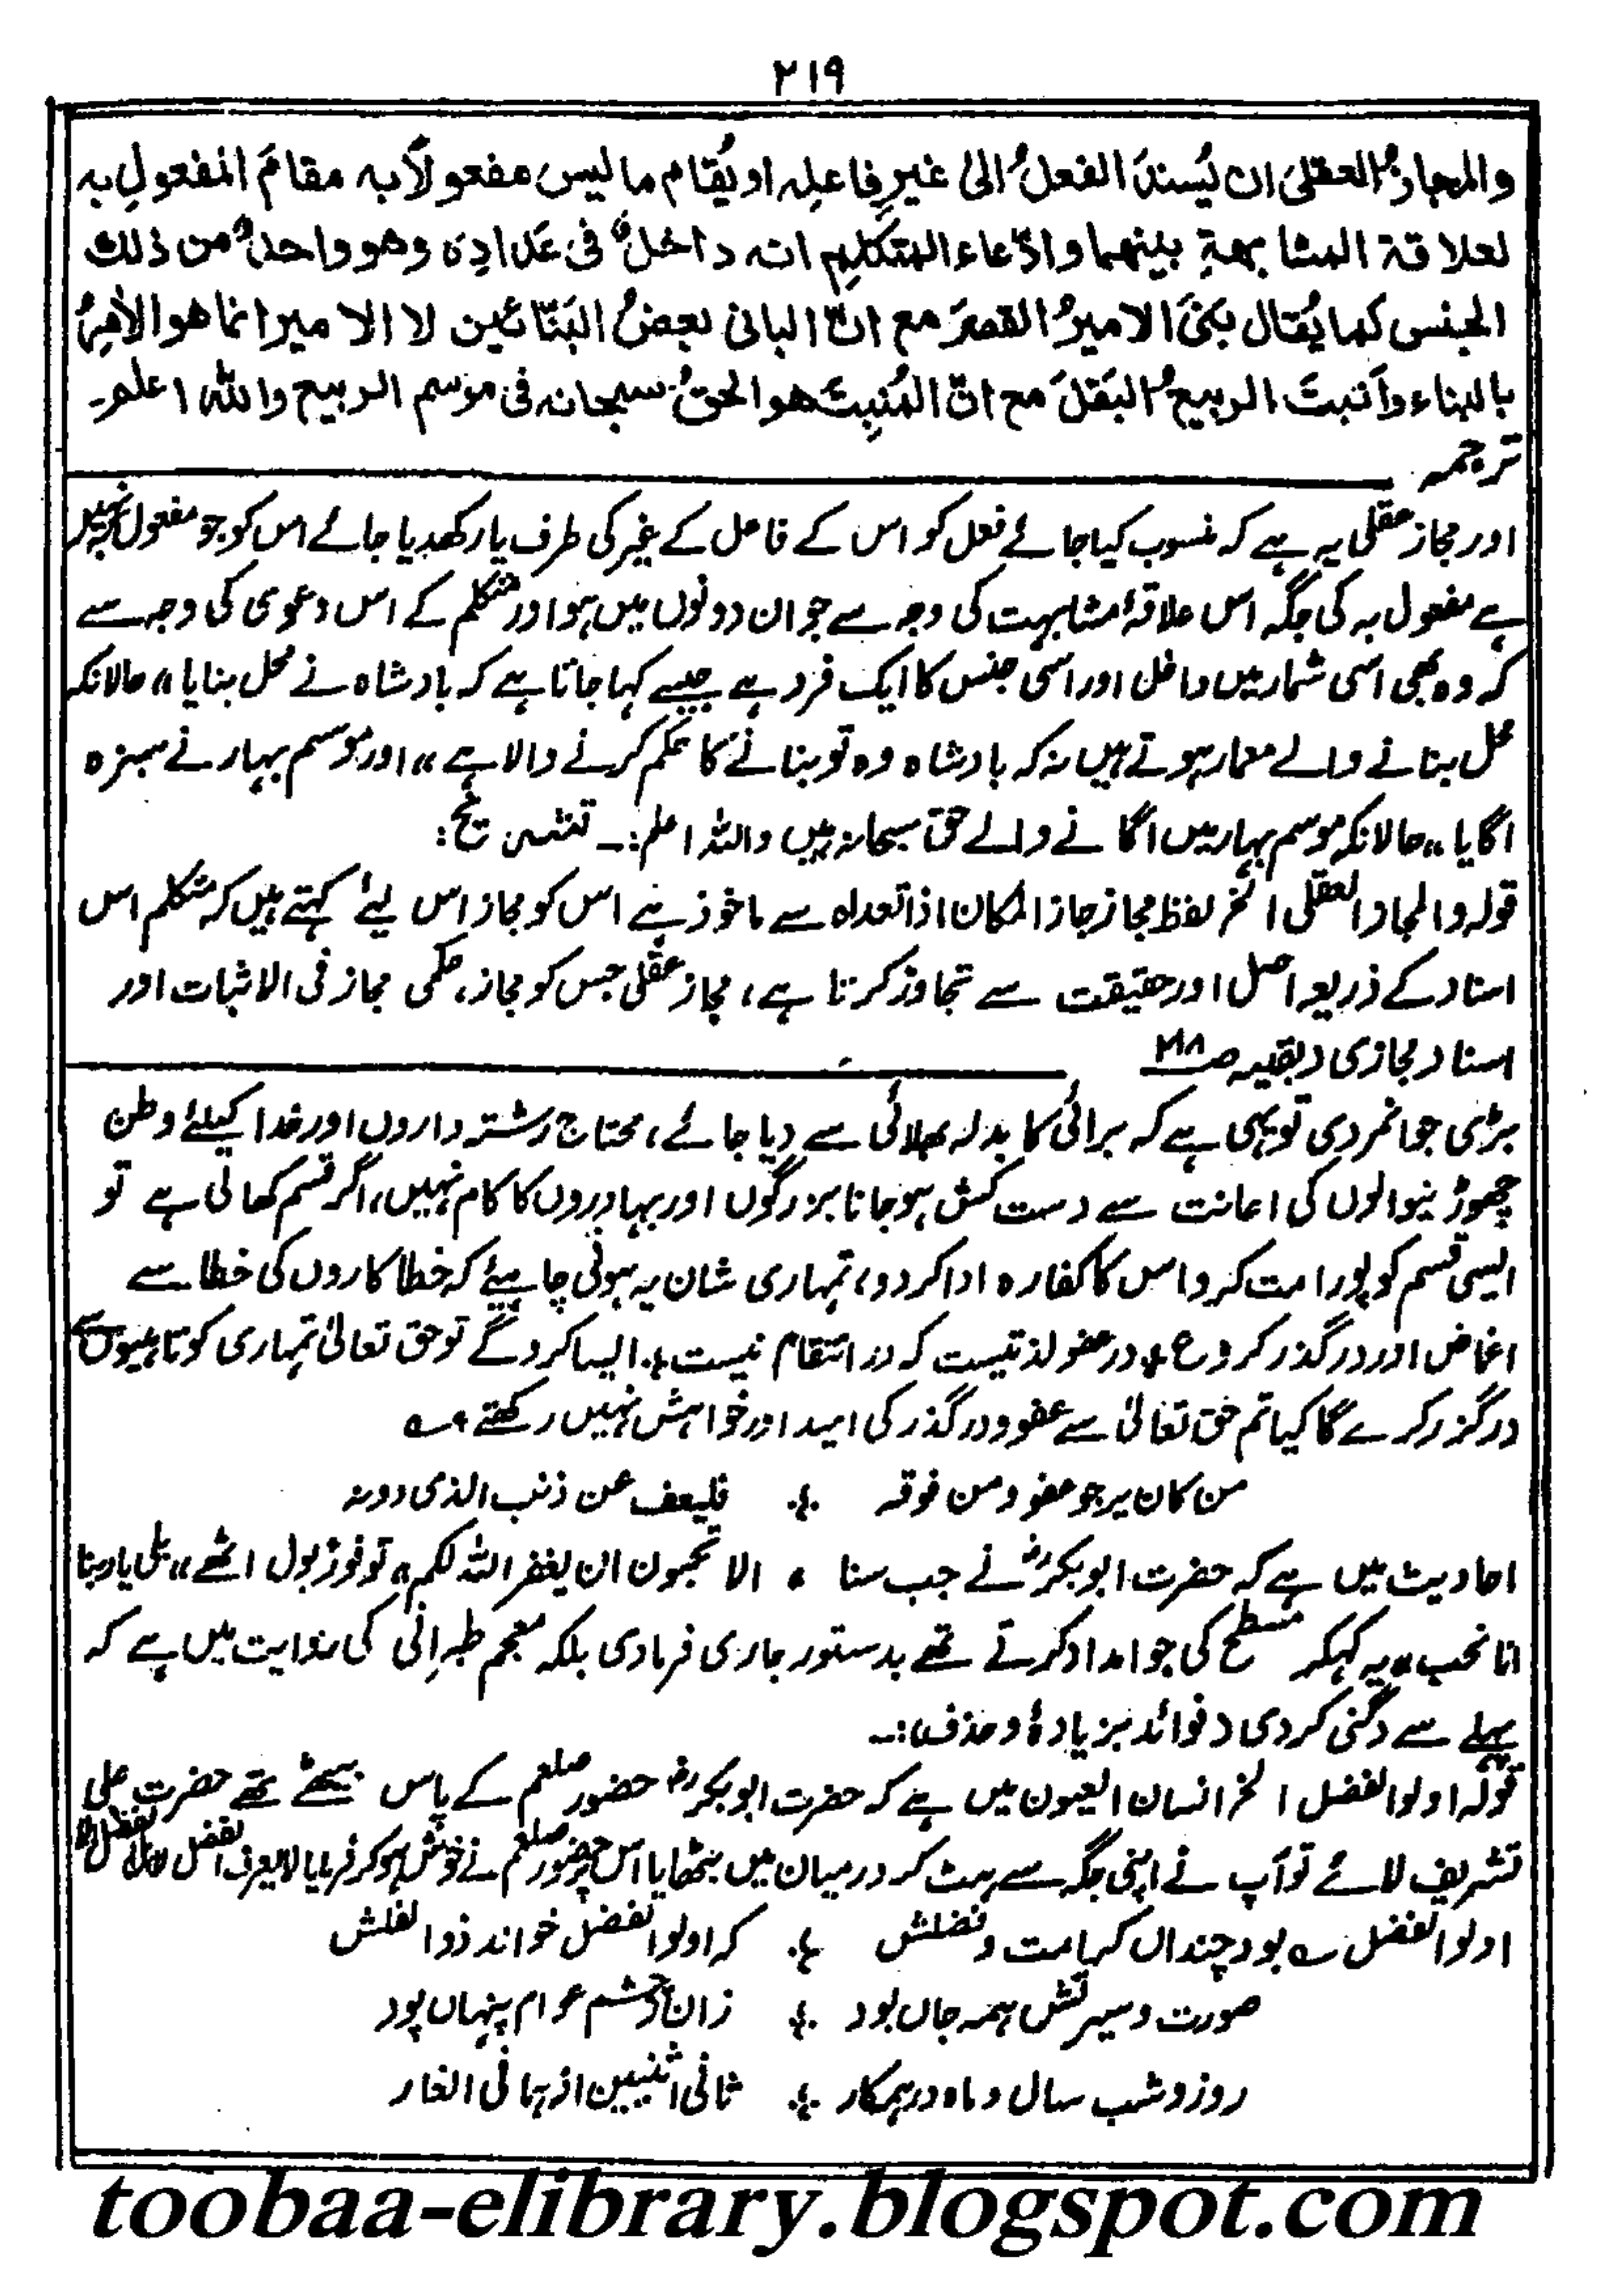 ۲۱۹
والمجازُ العقلی ان یُسندَ الفعلُ الیٰ غیرِ فاعلِہ او یُقام ما لیس مفعولاً بہ مقامَ المفعولِ بہ
لعلاقۃ المشابہۃِ بینہما وادّعاء المتکلمِ انہ داخلٌ فی عَدادِہ وھو واحدٌ من ذٰلک
الجنس کما یُقال بَنیَ الامیرُ القصرَ مع انّ البانی بعضُ البَنّائین لا الامیر انما ھو الآمِرُ
بالبناء وأنبتَ الربیعُ البَقَلَ مع انّ المُنبِتَ ھو الحقُّ سبحانہ فی موسم الربیع واللہ اعلم۔
ترجمہ
اور مجاز عقلی یہ ہے کہ منسوب کیا جائے فعل کو اس کے فاعل کے غیر کی طرف یا رکھدیا جائے اس کو جو مفعول بہ نہیں
ہے مفعول بہ کی جگہ اس علاقۂ مشابہت کی وجہ سے جو ان دونوں میں ہو اور متکلم کے اس دعوی کی وجہ سے
کہ وہ بھی اسی شمار میں داخل اور اسی جنس کا ایک فرد ہے جیسے کہا جاتا ہے کہ بادشاہ نے محل بنایا،، حالانکہ
محل بنانے والے معمار ہوتے ہیں نہ کہ بادشاہ وہ تو بنانے کا حکم کرنے والا ہے،، اور موسم بہار نے سبزہ
اگایا،، حالانکہ موسم بہار میں اگانے والے حق سبحانہ ہیں واللہ اعلم:۔ تشریح:
قولہ والمجاز العقلی الخ لفظ مجاز جاز المکان اذا تعداہ سے ماخوذ ہے اس کو مجاز اس لیۓ کہتے ہیں کہ متکلم اس
اسناد کے ذریعہ اصل اور حقیقت سے تجاوز کرتا ہے، مجاز عقلی جس کو مجاز، حکمی مجاز فی الاثبات اور
اسناد مجازی (بقیہ صـ۲۱۸
بڑی جوانمردی تو یہی ہے کہ برائی کا بدلہ بھلائی سے دیا جائے، محتاج رشتہ داروں اور خدا کیلئے وطن
چھوڑنیوالوں کی اعانت سے دست کش ہو جانا بزرگوں اور بہادروں کا کام نہیں، اگر قسم کھالی ہے تو
ایسی قسم کو پورا مت کرو اس کا کفارہ ادا کر دو، تمہاری شان یہ ہونی چاہیئے کہ خطا کاروں کی خطا سے
اغماض اور درگذر کرو ع در عفو لذتیست کہ در انتقام نیست، ایسا کروگے تو حق تعالیٰ تمہاری کوتاہیوں سے
درگزر کرے گا کیا تم حق تعالیٰ سے عفو و درگذر کی امید اور خواہش نہیں رکھتے ؎
من کان یرجو عفو من فوقہ ؞ فلیعف عن ذنب الذی دونہ
احادیث میں ہے کہ حضرت ابوبکرؓ نے جب سنا ، الا تحبون ان یغفر اللہ لکم،، تو فوراً بول اٹھے،، بلی یا ربنا
انا نحب،، یہ کہکر مسطح کی جو امداد کرتے تھے بدستور جاری فرمادی بلکہ معجم طبرانی کی روایت میں ہے کہ
پہلے سے دگنی کر دی (فوائد بزیادۃ و حذف):۔
قولہ اولوا الفضل الخ انسان العیون میں ہے کہ حضرت ابوبکرؓ حضور صلعم کے پاس بیٹھے تھے حضرت علی
تشریف لائے تو آپ نے اپنی جگہ سے ہٹ کر درمیان میں بٹھایا اس پر حضور صلعم نے خوش ہو کر فرمایا لا یعرف الفضل لاہل الفضل الا
اولوا الفضل ؎ بود چنداں کرامت و فضلش ؞ کہ اولوا الفضل خواند ذو الفضلش
صورت و سیرتش ہمہ جاں بود ؞ زاں ز چشم عوام پنہاں بود
روز و شب سال و ماہ در ہمہ کار ؞ ثانی اثنین اذ ہما فی الغار
toobaa-elibrary.blogspot.com